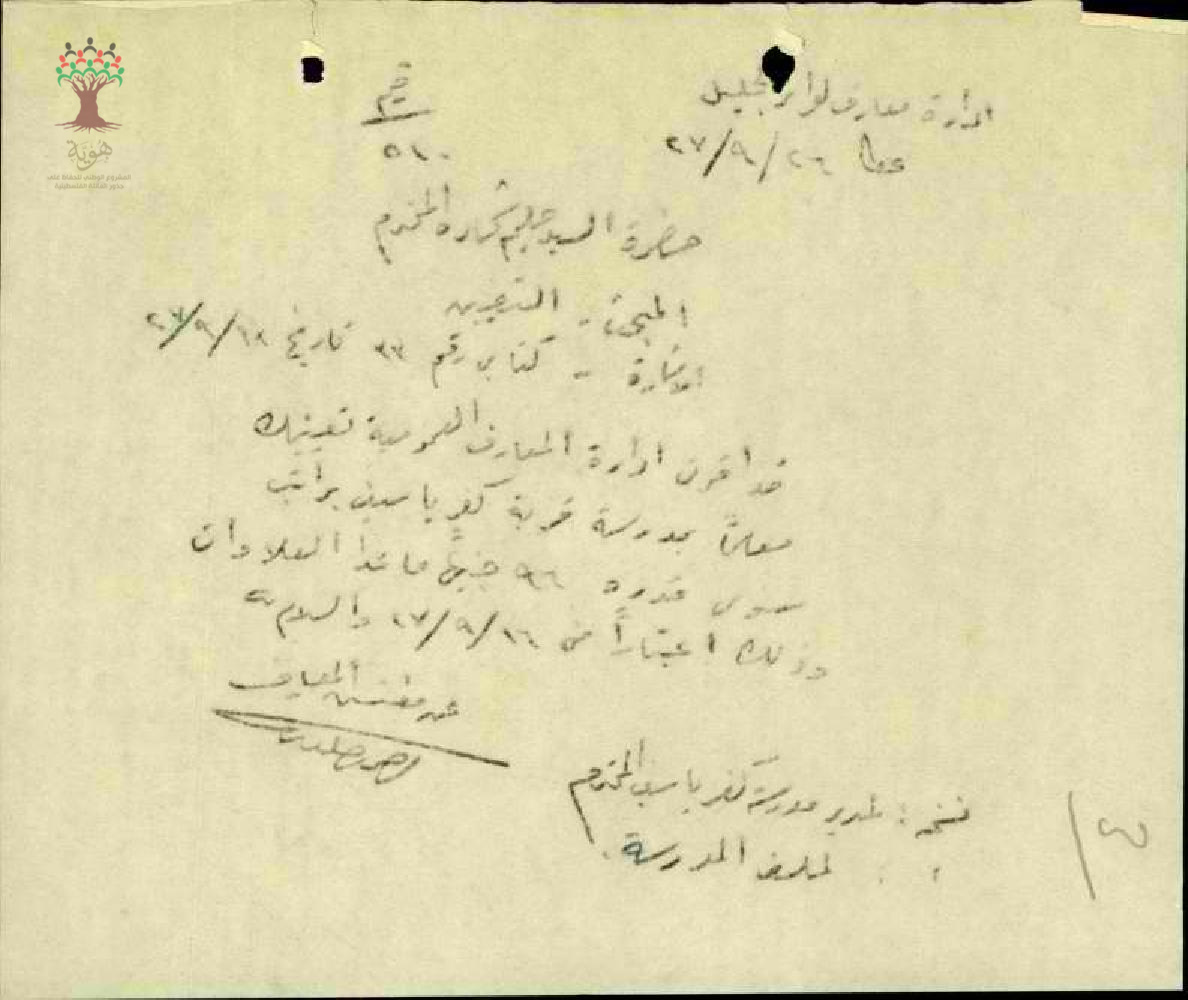 هوية
المشروع الوطني للحفاظ على
جذور العائلة الفلسطينية
ادارة معارف لواء الجليل
عكا ٢٧/٩/٢٦
رقم
٥١٠
حضرة السيد شحاده المحترم
المبحث - التعيين
الاشارة - كتابي رقم ٣٣ تاريخ ٢٧/٩/١٨
قد اقرت ادارة المعارف العمومية تعيينك
معلماً بمدرسة قرية كفر ياسيف براتب
سنوي قدره ٩٦ جنيهاً ما عدا العلاوات
وذلك اعتباراً من ٢٧/٩/١٦ والسلام
عن مفتش المعارف
نسخة : لمدير مدرسة كفر ياسيف المحترم
: : لملف المدرسة .